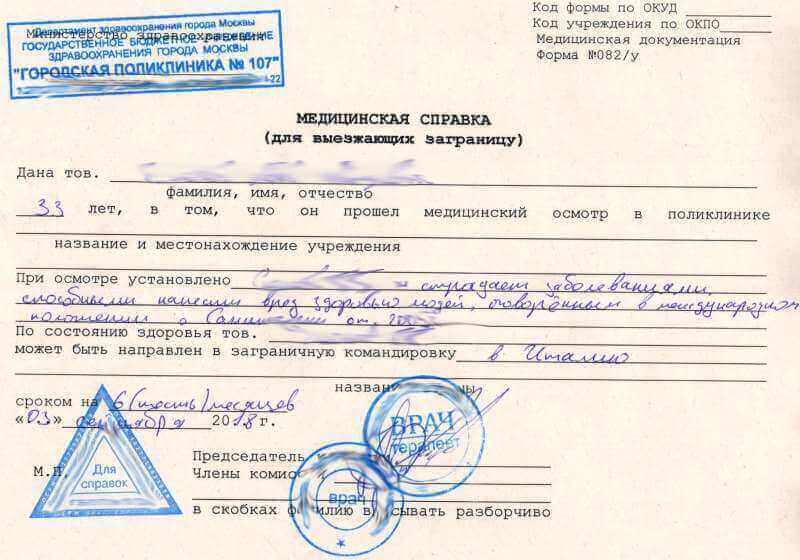 Департамент здравоохранения города Москвы
Министерство здравоохранения
ГОСУДАРСТВЕННОЕ БЮДЖЕТНОЕ УЧРЕЖДЕНИЕ
ЗДРАВООХРАНЕНИЯ ГОРОДА МОСКВЫ
"ГОРОДСКАЯ ПОЛИКЛИНИКА № 107"
Код формы по ОКУД
Код учреждения по ОКПО
Медицинская документация
Форма №082/у
МЕДИЦИНСКАЯ СПРАВКА
(для выезжающих заграницу)
Дана тов.
фамилия, имя, отчество
33 лет, в том, что он прошел медицинский осмотр в поликлинике
название и местонахождение учреждения
При осмотре установлено страдает заболеваниями,
способными нанести вред здоровью людей, оговорённым в международном
положении о
По состоянию здоровья тов.
может быть направлен в заграничную командировку в Италию
сроком на 6 (шесть) месяцев
«03» сентября 2018 г.
Председатель
М.П. Члены
Для
справок
ВРАЧ
терапевт
врач
в скобках вписывать разборчиво